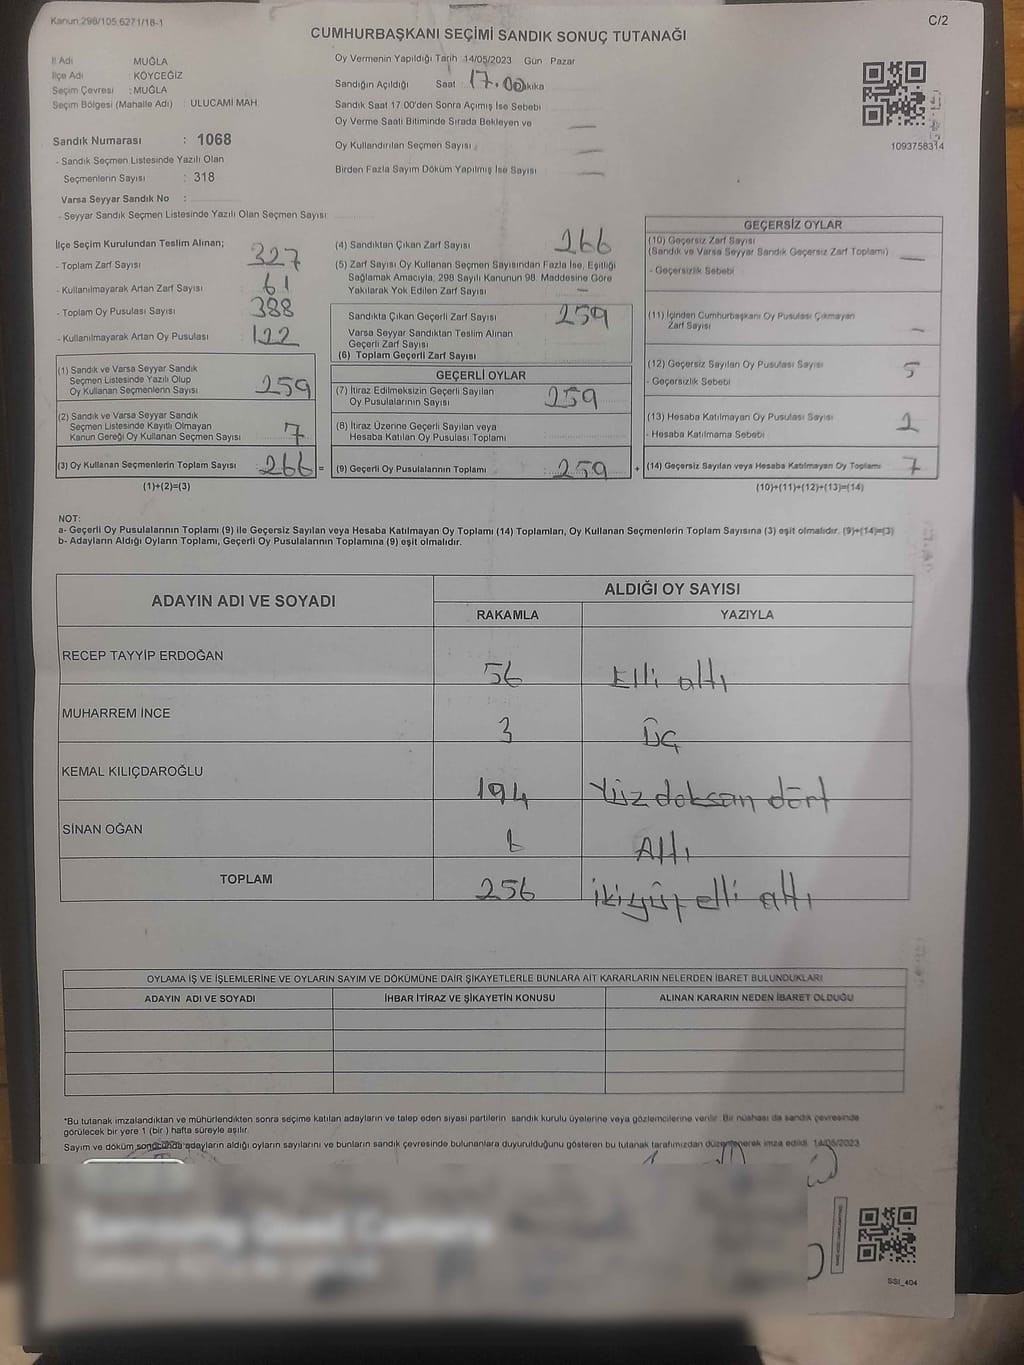 Kanun:298/105,6271/18-1
C/2
CUMHURBAŞKANI SEÇİMİ SANDIK SONUÇ TUTANAĞI
İl Adı MUĞLA
İlçe Adı : KÖYCEĞİZ
Seçim Çevresi : MUĞLA
Seçim Bölgesi (Mahalle Adı) : ULUCAMİ MAH.
Sandık Numarası : 1068
- Sandık Seçmen Listesinde Yazılı Olan
Seçmenlerin Sayısı : 318
Varsa Seyyar Sandık No :
- Seyyar Sandık Seçmen Listesinde Yazılı Olan Seçmen Sayısı
Oy Vermenin Yapıldığı Tarih 14/05/2023 Gün Pazar
Sandığın Açıldığı Saat 17.00 kika
Sandık Saat 17.00'den Sonra Açımış İse Sebebi
Oy Verme Saati Bitiminde Sırada Bekleyen ve —
Oy Kullandırılan Seçmen Sayısı —
Birden Fazla Sayım Döküm Yapılmış İse Sayısı —
1093758314
İlçe Seçim Kurulundan Teslim Alınan;
- Toplam Zarf Sayısı 327
- Kullanılmayarak Artan Zarf Sayısı 61
- Toplam Oy Pusulası Sayısı 388
- Kullanılmayarak Artan Oy Pusulası 122
(1) Sandık ve Varsa Seyyar Sandık
Seçmen Listesinde Yazılı Olup
Oy Kullanan Seçmenlerin Sayısı 259
(2) Sandık ve Varsa Seyyar Sandık
Seçmen Listesinde Kayıtlı Olmayan
Kanun Gereği Oy Kullanan Seçmen Sayısı 7
(3) Oy Kullanan Seçmenlerin Toplam Sayısı 266 =
(1)+(2)=(3)
(4) Sandıktan Çıkan Zarf Sayısı 266
(5) Zarf Sayısı Oy Kullanan Seçmen Sayısından Fazla İse, Eşitliği
Sağlamak Amacıyla, 298 Sayılı Kanunun 98. Maddesine Göre
Yakılarak Yok Edilen Zarf Sayısı —
Sandıkta Çıkan Geçerli Zarf Sayısı 259
Varsa Seyyar Sandıktan Teslim Alınan
Geçerli Zarf Sayısı
(6) Toplam Geçerli Zarf Sayısı
GEÇERLİ OYLAR
(7) İtiraz Edilmeksizin Geçerli Sayılan
Oy Pusulalarının Sayısı 259
(8) İtiraz Üzerine Geçerli Sayılan veya
Hesaba Katılan Oy Pusulası Toplamı
(9) Geçerli Oy Pusulalarının Toplamı 259 +
GEÇERSİZ OYLAR
(10) Geçersiz Zarf Sayısı
(Sandık ve Varsa Seyyar Sandık Geçersiz Zarf Toplamı) —
- Geçersizlik Sebebi
(11) İçinden Cumhurbaşkanı Oy Pusulası Çıkmayan
Zarf Sayısı —
(12) Geçersiz Sayılan Oy Pusulası Sayısı 5
- Geçersizlik Sebebi
(13) Hesaba Katılmayan Oy Pusulası Sayısı 2
- Hesaba Katılmama Sebebi
(14) Geçersiz Sayılan veya Hesaba Katılmayan Oy Toplamı 7
(10)+(11)+(12)+(13)=(14)
NOT:
a- Geçerli Oy Pusulalarının Toplamı (9) ile Geçersiz Sayılan veya Hesaba Katılmayan Oy Toplamı (14) Toplamları, Oy Kullanan Seçmenlerin Toplam Sayısına (3) eşit olmalıdır. (9)+(14)=(3)
b- Adayların Aldığı Oyların Toplamı, Geçerli Oy Pusulalarının Toplamına (9) eşit olmalıdır.
ADAYIN ADI VE SOYADI
ALDIĞI OY SAYISI
RAKAMLA YAZIYLA
RECEP TAYYİP ERDOĞAN 56 Elli altı
MUHARREM İNCE 3 Üç
KEMAL KILIÇDAROĞLU 194 Yüz doksan dört
SİNAN OĞAN 6 Altı
TOPLAM 256 ikiyüz elli altı
OYLAMA İŞ VE İŞLEMLERİNE VE OYLARIN SAYIM VE DÖKÜMÜNE DAİR ŞİKAYETLERLE BUNLARA AİT KARARLARIN NELERDEN İBARET BULUNDUKLARI
ADAYIN ADI VE SOYADI İHBAR İTİRAZ VE ŞİKAYETİN KONUSU ALINAN KARARIN NEDEN İBARET OLDUĞU
*Bu tutanak imzalandıktan ve mühürlendikten sonra seçime katılan adayların ve talep eden siyasi partilerin sandık kurulu üyelerine veya gözlemcilerine verilir. Bir nüshası da sandık çevresinde
görülecek bir yere 1 (bir ) hafta süreyle aşılır.
Sayım ve döküm sonucunda adayların aldığı oyların sayılarını ve bunların sandık çevresinde bulunanlara duyurulduğunu gösteren bu tutanak tarafımızdan düzenlenerek imza edildi. 14/05/2023
SSI_404